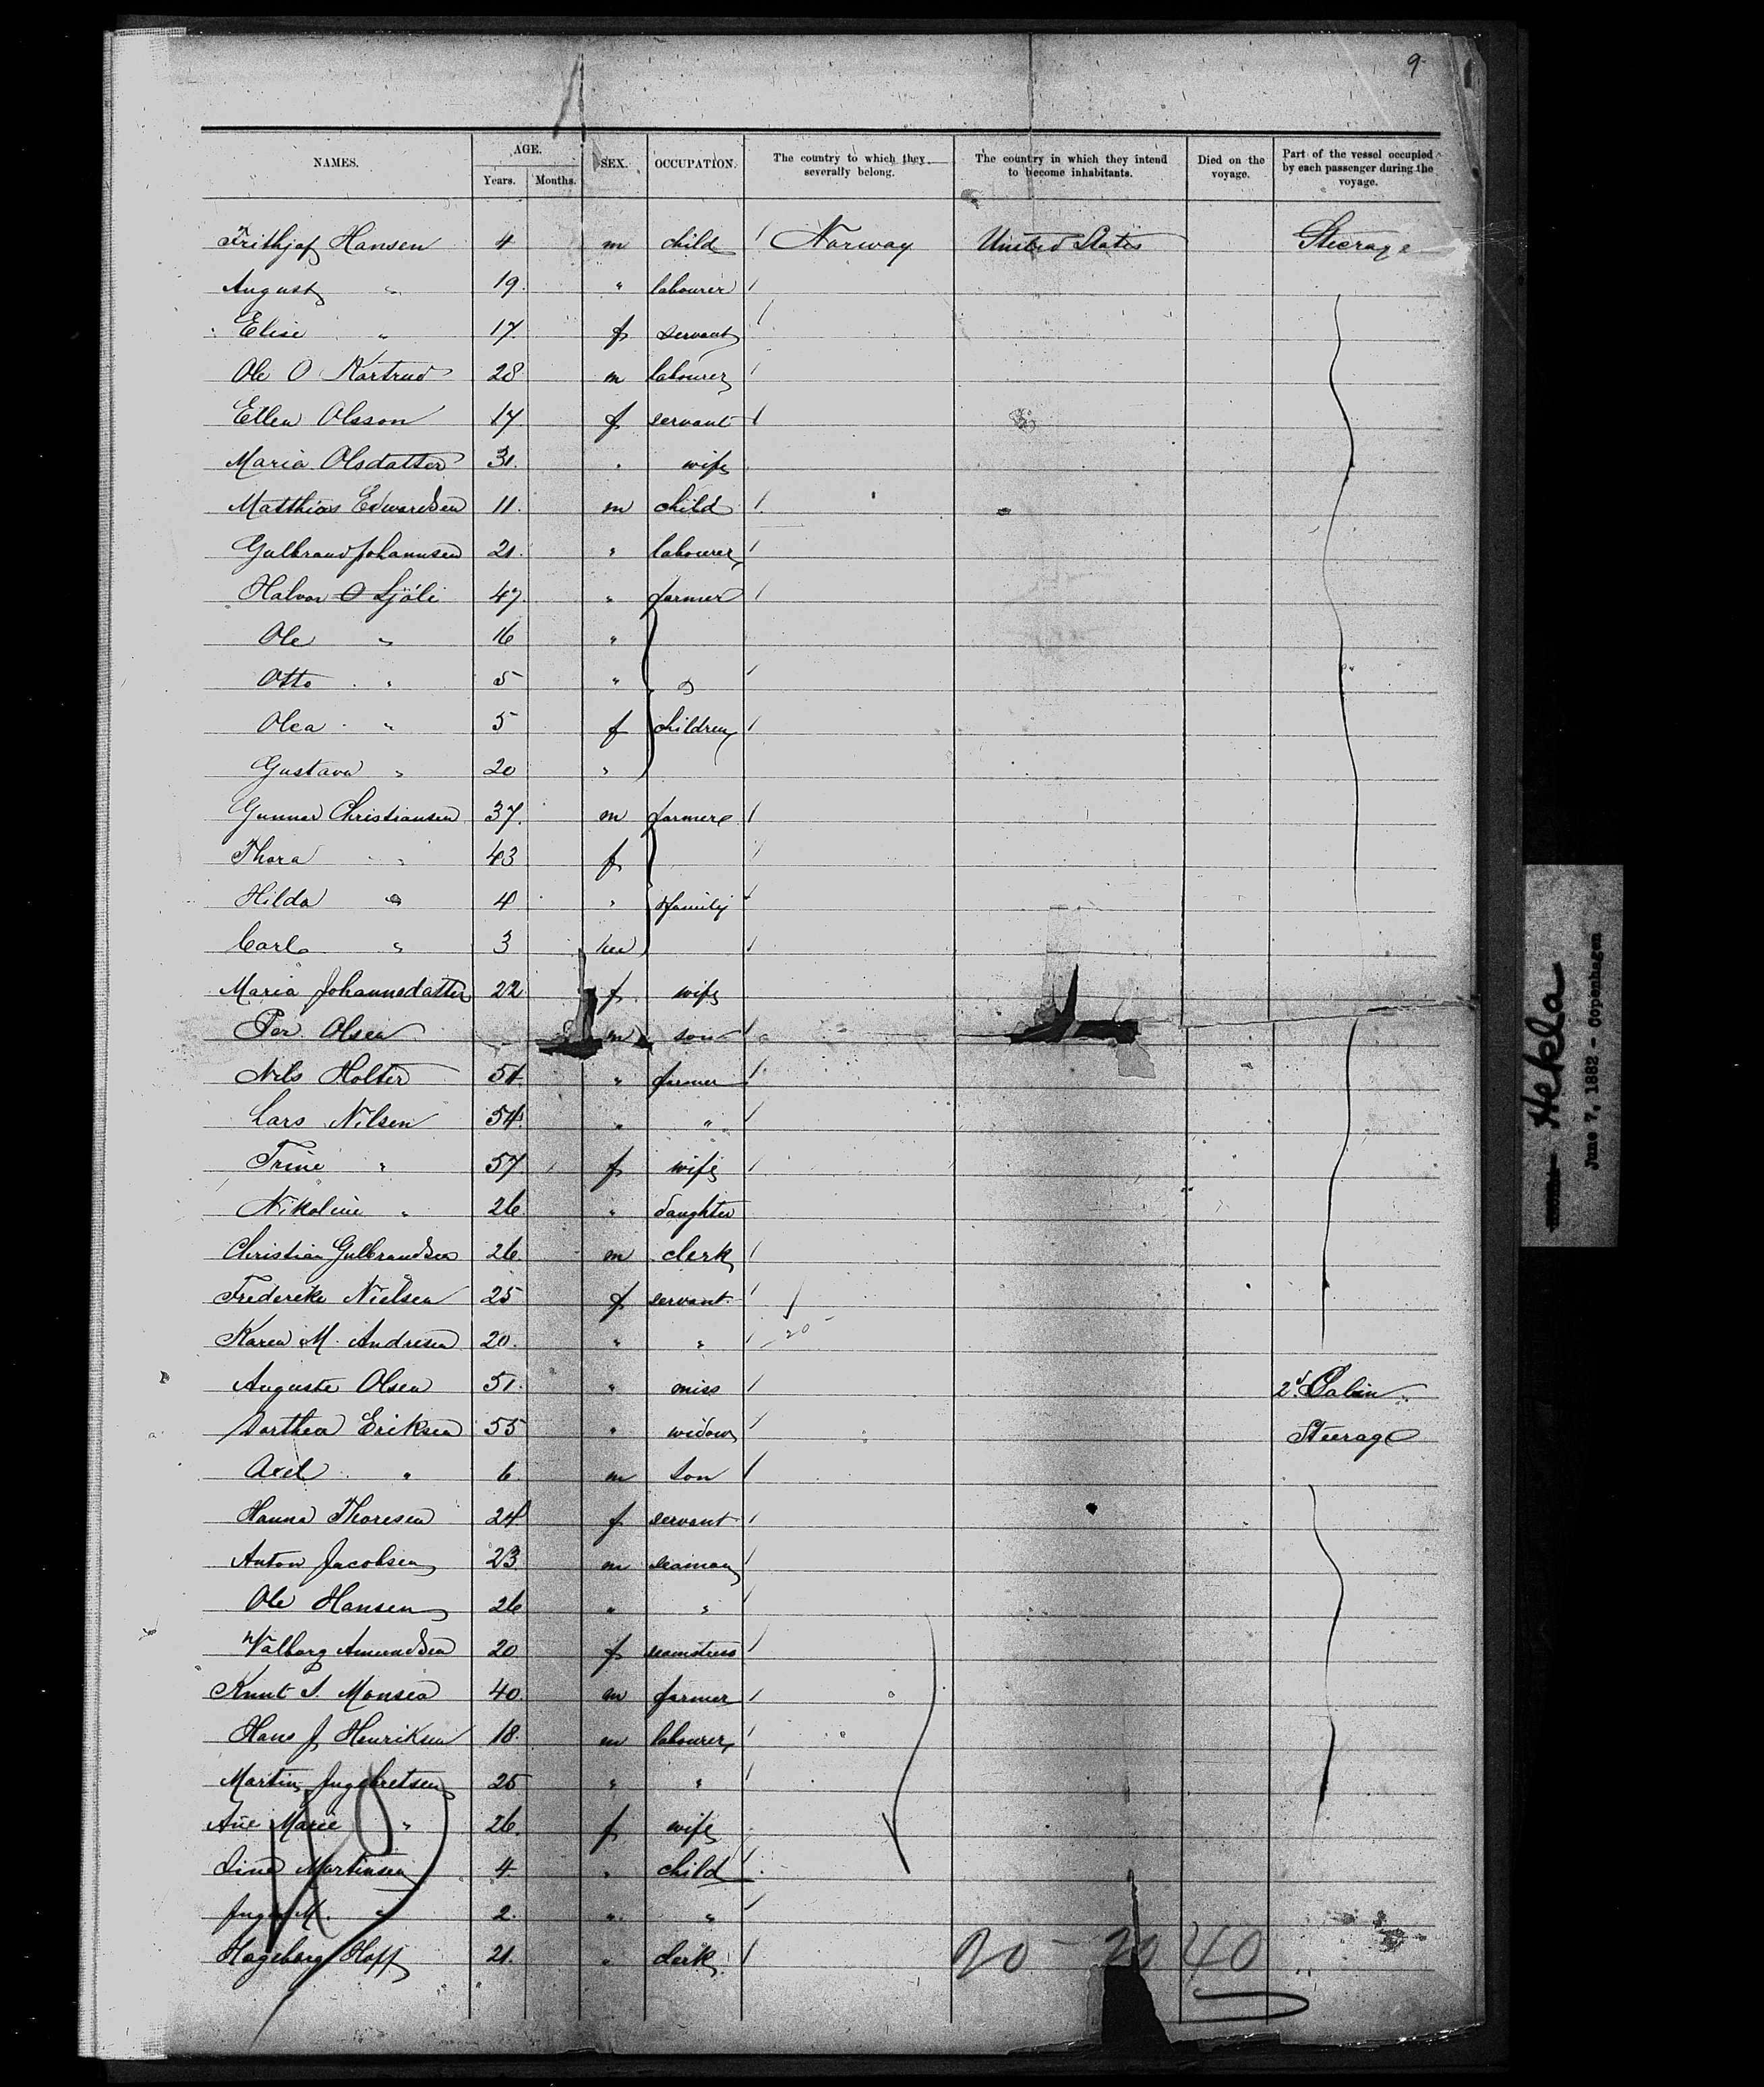 9
NAMES. AGE. SEX. OCCUPATION. The country to which they severally belong. The country in which they intend to become inhabitants. Died on the voyage. Part of the vessel occupied by each passenger during the voyage.
Years. Months.
Frithjof Hansen 4 m child Norway United States Steerage
August " 19. " labourer
Elise " 17. f servant
Ole O 28 m labourer
Ellen Olsson 17. f servant
Maria Olsdatter 31. " wife
Matthias Edwardsen 11. m child
Gulbrand Johannsen 21. " labourer
Halvor O Sjöli 47. " farmer
Ole " 16 "
Otto " 5 " &
Olea " 5 f children
Gustava " 20 "
Gunnar Christiansen 37. m farmer
Thora " 43 f
Hilda " 4 " & family
Carl " 3 m
Maria Johannsdatter 22 f wife
Per Olsen m son
Nils Holter 51 " farmer
Lars Nilsen 54. " "
Trine " 57 f wife
Nikoline " 26. " daughter
Christian Gulbrandsen 26. m clerk
Fredereke Nielsen 25 f servant
Karen M. Andresen 20. " " 20
Auguste Olsen 51. " miss 2d Cabin
Dorthea Eriksen 55 " widow Steerage
Axel " 6 m son
Hanna Thoresen 24 f servant
Anton Jacobsen 23. m seaman
Ole Hansen 26 " "
Valborg Amundsen 20 f seamstress
Knut S. Monsen 40. m farmer
Hans J. Henriksen 18. m labourer
Martin Ingebretsen 25 " "
Ane Marie " 26. f wife
Lina Martinsen 4. " child
Inga M. " 2. " "
Hageborg Hoff 21. " clerk
20 - 20 40
Hekla
June 7, 1882 - Copenhagen